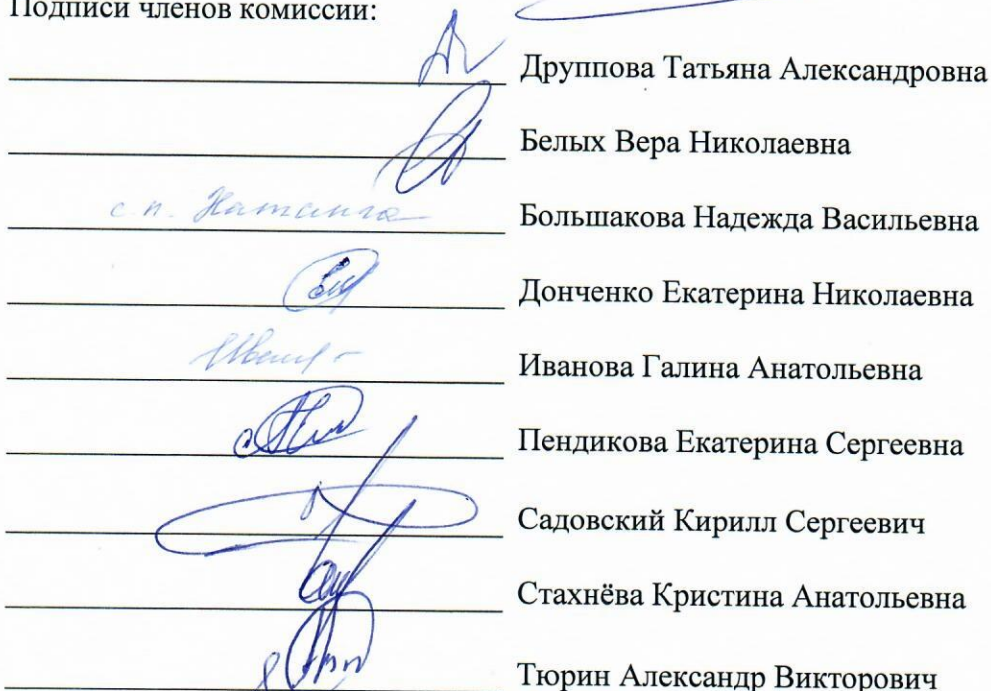 Подписи членов комиссии:
Друппова Татьяна Александровна
Белых Вера Николаевна
с.п. Большакова Надежда Васильевна
Донченко Екатерина Николаевна
Иванова Галина Анатольевна
Пендикова Екатерина Сергеевна
Садовский Кирилл Сергеевич
Стахнёва Кристина Анатольевна
Тюрин Александр Викторович